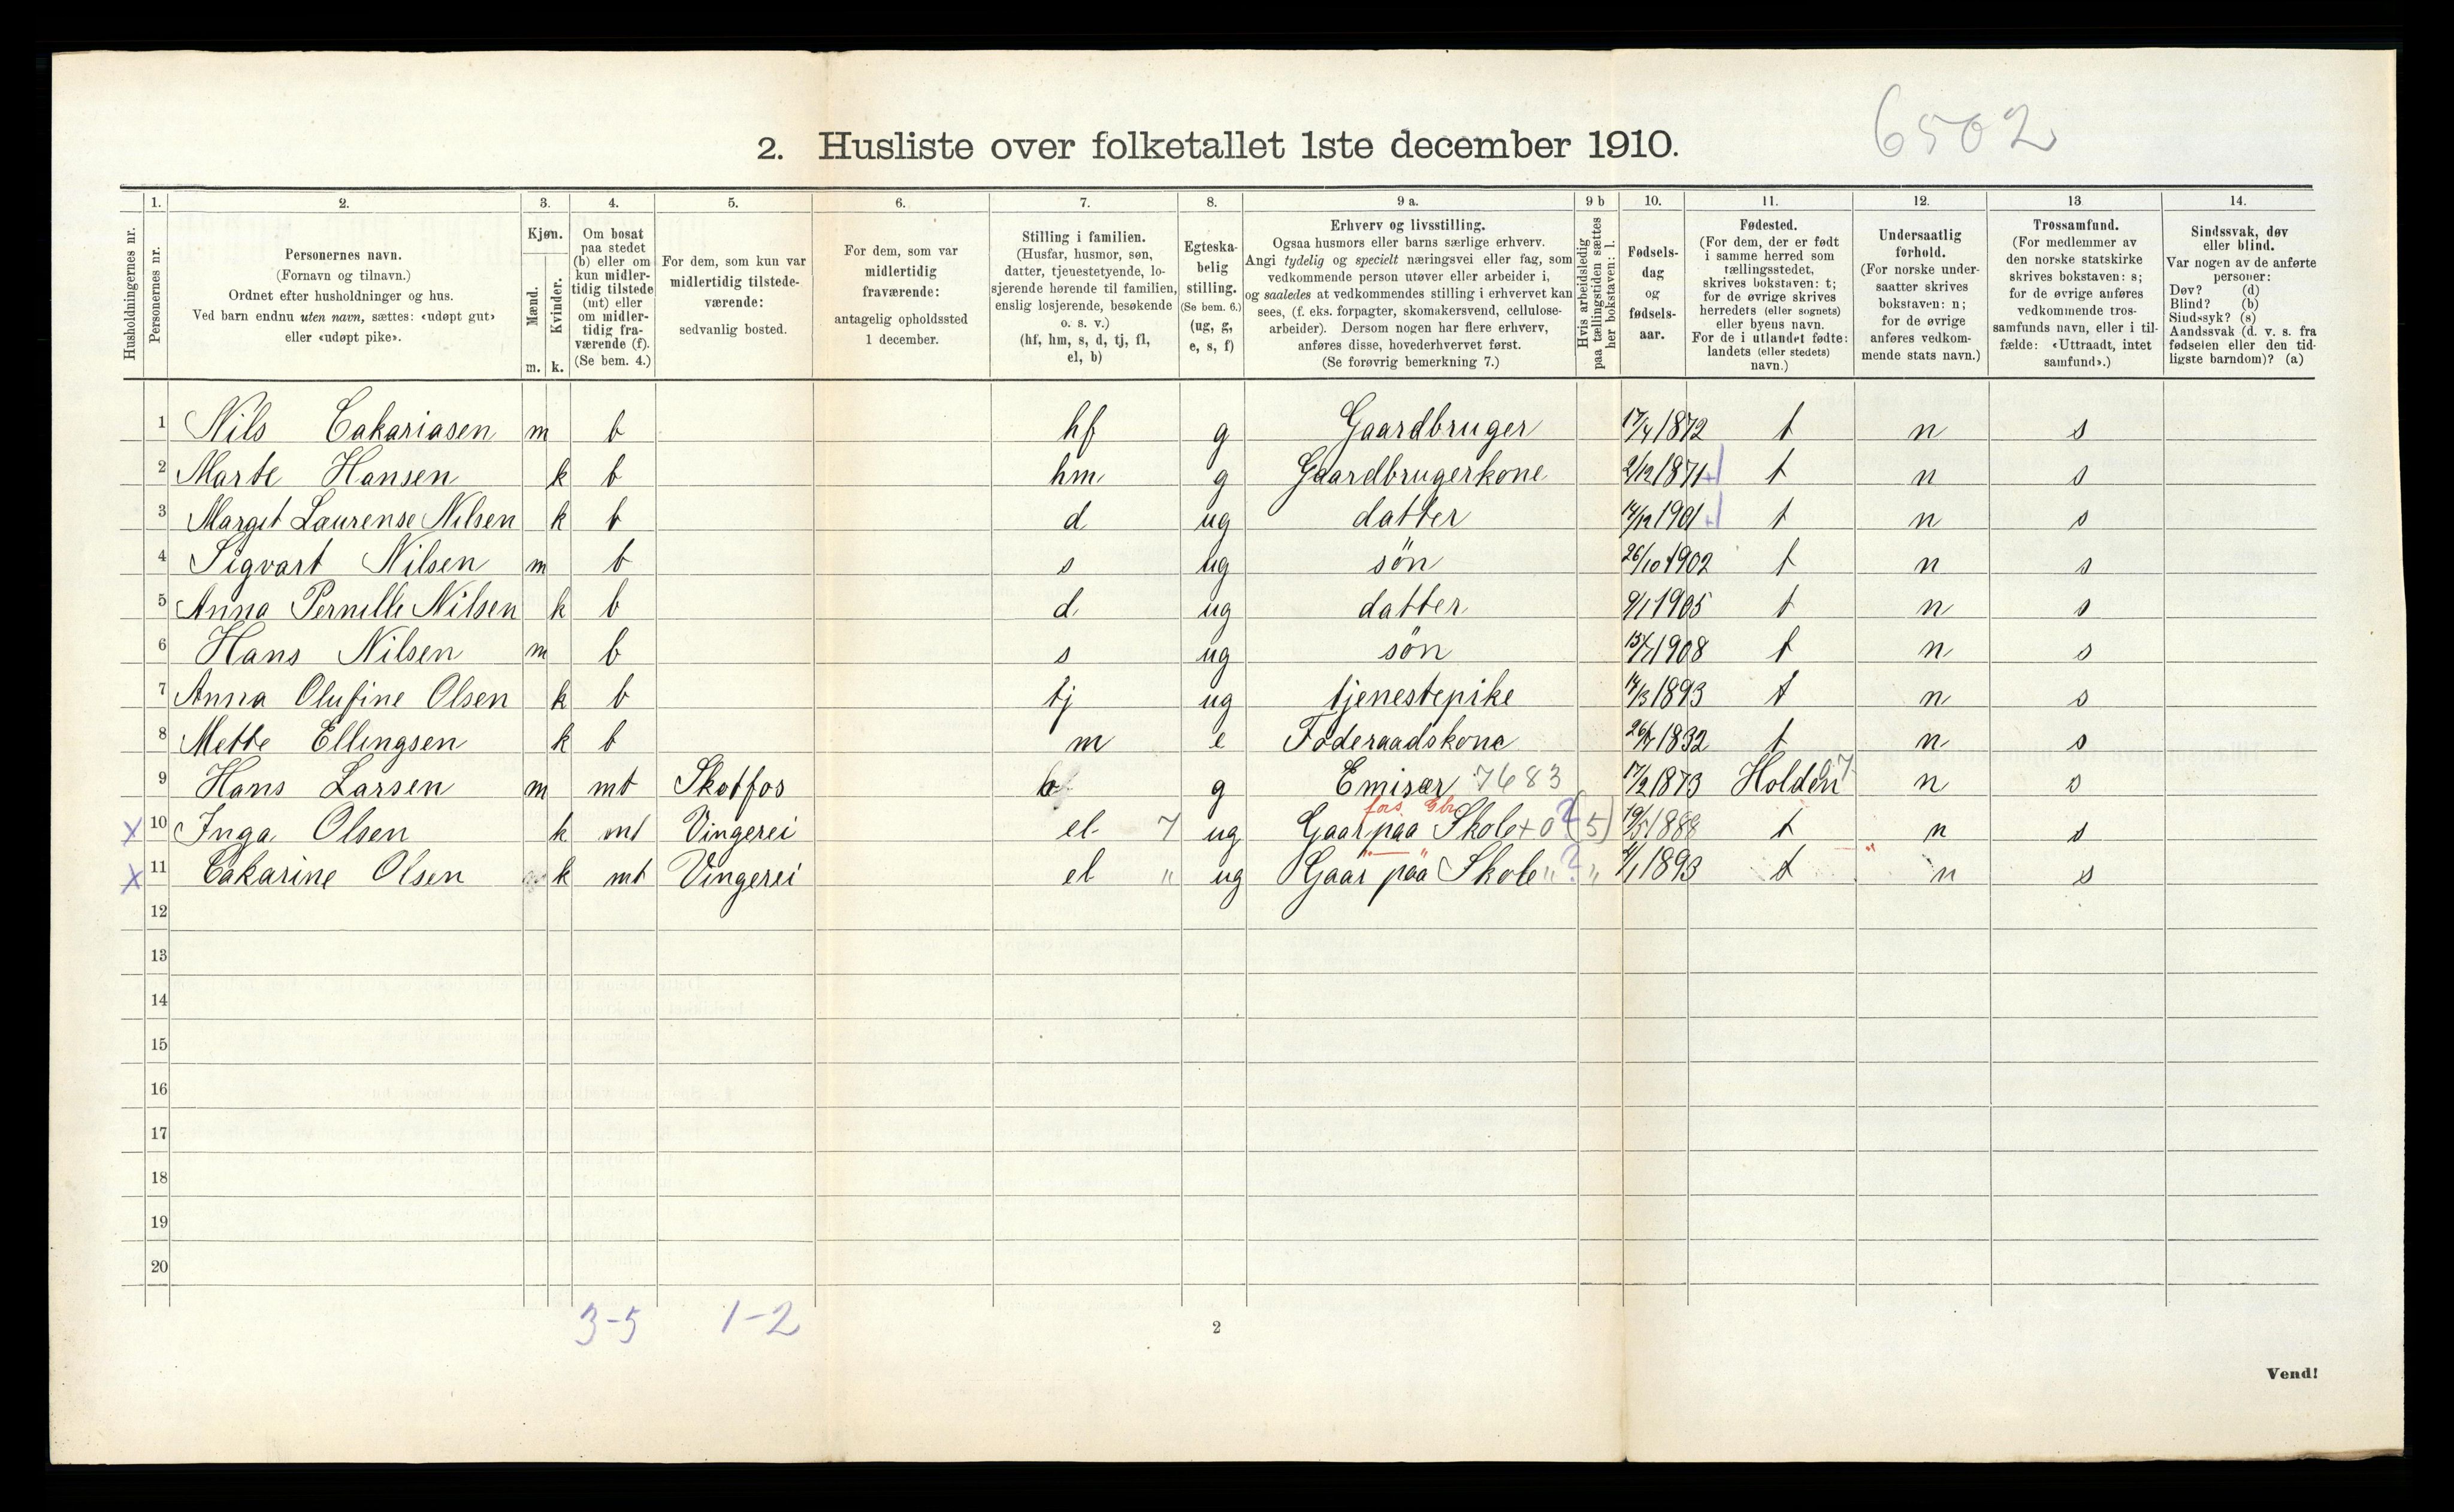 6502
2. Husliste over folketallet 1ste december 1910.
Husholdningernes nr.
1. Personernes nr.
2. Personernes navn. (Fornavn og tilnavn.) Ordnet efter husholdninger og hus. Ved barn endnu uten navn, sættes: «udøpt gut» eller «udøpt pike».
3. Kjøn. Mænd. m. Kvinder. k.
4. Om bosat paa stedet (b) eller om kun midlertidig tilstede (mt) eller om midlertidig fraværende (f). (Se bem. 4.)
5. For dem, som kun var midlertidig tilstedeværende: sedvanlig bosted.
6. For dem, som var midlertidig fraværende: antagelig opholdssted 1 december.
7. Stilling i familien. (Husfar, husmor, søn, datter, tjenestetyende, losjerende hørende til familien, enslig losjerende, besøkende o. s. v.) (hf, hm, s, d, tj, fl, el, b)
8. Egteskabelig stilling. (Se bem. 6.) (ug, g, e, s, f)
9 a. Erhverv og livsstilling. Ogsaa husmors eller barns særlige erhverv. Angi tydelig og specielt næringsvei eller fag, som vedkommende person utøver eller arbeider i, og saaledes at vedkommendes stilling i erhvervet kan sees, (f. eks. forpagter, skomakersvend, cellulosearbeider). Dersom nogen har flere erhverv, anføres disse, hovederhvervet først. (Se forøvrig bemerkning 7.)
9 b Hvis arbeidsledig paa tællingstiden sættes her bokstaven: l.
10. Fødselsdag og fødselsaar.
11. Fødested. (For dem, der er født i samme herred som tællingsstedet, skrives bokstaven: t; for de øvrige skrives herredets (eller sognets) eller byens navn. For de i utlandet fødte: landets (eller stedets) navn.)
12. Undersaatlig forhold. (For norske undersaatter skrives bokstaven: n; for de øvrige anføres vedkommende stats navn.)
13 Trossamfund. (For medlemmer av den norske statskirke skrives bokstaven: s; for de øvrige anføres vedkommende trossamfunds navn, eller i tilfælde: «Uttraadt, intet samfund».)
14. Sindssvak, døv eller blind. Var nogen av de anførte personer: Døv? (d) Blind? (b) Sindssyk? (s) Aandssvak (d. v. s. fra fødselen eller den tidligste barndom)? (a)
1 Nils Cakariasen m b hf g Gaardbruger 17/4 1872 t n s
2 Marte Hansen k b hm g Gaardbrugerkone 2/12 1871 t n s
3 Margit Laurense Nilsen k b d ug datter 14/12 1901 t n s
4 Sigvart Nilsen m b s ug søn 26/10 1902 t n s
5 Anna Pernille Nilsen k b d ug datter 9/1 1905 t n s
6 Hans Nilsen m b s ug søn 1908 t n s
7 Anna Olufine Olsen k b tj ug tjenestepike 14/3 1893 t n s
8 Mette Ellingsen k b m e Føderaadskone 1832 t n s
9 Hans Larsen m mt Skotfos b g Emisær 7683 17/2 1873 Holden 7 n s
X 10 Inga Olsen k mt Vingerei el 7 ug Gaar paa Skole + 0 ? (5) 19/5 1888 t n s
X 11 Cakarine Olsen k mt Vingerei el " ug Gaar paa Skole " ? " 1893 t n s
12
13
14
15
16
17
18
19
20
3-5 1-2
2
Vend!